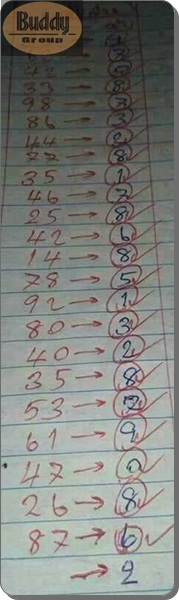 Buddy
Group
42 →
33 → 8
98 →
86 → 3
44 → 2
22 → 8
35 → 1
46 →
25 → 8
42 → 6
14 → 8
78 → 5
92 → 1
80 → 3
40 → 2
35 → 8
53 →
61 → 9
47 →
26 → 8
87 → 6
→ 2